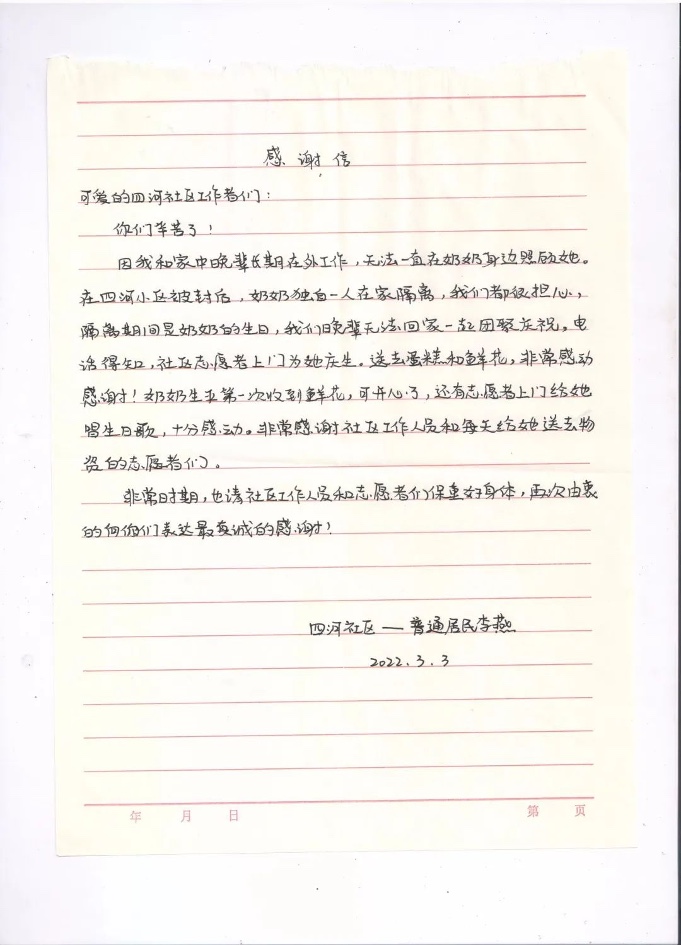 感谢信
可爱的四河社区工作者们：
你们辛苦了！
因我和家中晚辈长期在外工作，无法一直在奶奶身边照顾她。
在四河小区被封后，奶奶独自一人在家隔离，我们都很担心，
隔离期间是奶奶的生日，我们晚辈无法回家一起团聚庆祝。电
话得知，社区志愿者上门为她庆生。送去蛋糕和鲜花，非常感动
感谢！奶奶生平第一次收到鲜花，可开心了，还有志愿者上门给她
唱生日歌，十分感动。非常感谢社区工作人员和每天给她送去物
资的志愿者们。
非常时期，也请社区工作人员和志愿者们保重好身体，再次由衷
的向你们表达最真诚的感谢！
四河社区一普通居民李燕
2022.3.3
年 月 日 第 页